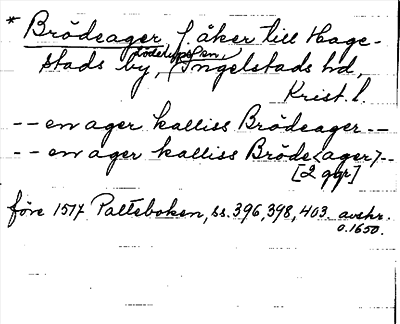 * Brödeager f. åker till Hage-
Löderups sn,
stads by, Ingelstads hd,
Krist. l.
-- en ager kalliss Brödeager --
-- en ager kalliss Bröde<ager> --
[2 ggr]
före 1517 Palteboken, ss. 396, 398, 403. avskr.
o. 1650.